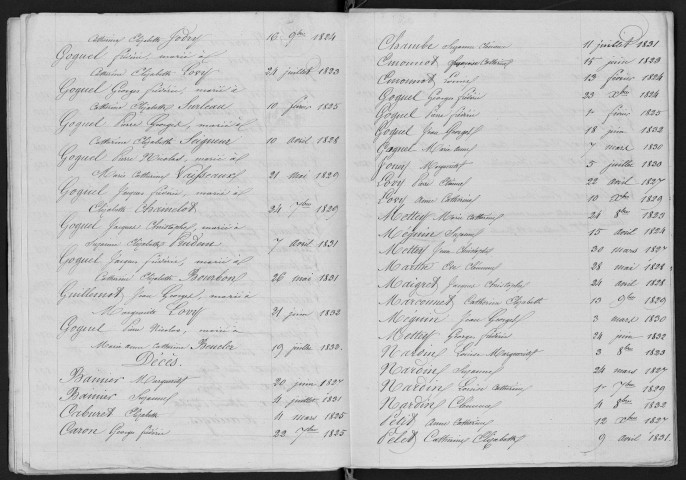 Catherine Elizabeth Jodry 16 9bre 1824
Goguel Frédéric, marié à
Catherine Elizabeth Lovy 24 juillet 1823
Goguel George Frédéric, marié à
Catherine Elizabeth Surleau 10 février 1825
Goguel Pierre George, marié à
Catherine Elizabeth Seigneur 10 avril 1828
Goguel Pierre Nicolas, marié à
Marie Catherine 21 mai 1829
Goguel Jacques Frédéric, marié à
Elizabeth Chamelot 24 7bre 1829
Goguel Jacques Christophe, marié à
Suzanne Elizabeth 7 avril 1831
Goguel Jacques Frédéric, marié à
Catherine Elizabeth Bourbon 26 mai 1831
Guillemot Jean George, marié à
Marguerite Lovy 21 juin 1832
Goguel Pierre Nicolas, marié à
Marie Anne Catherine Boucler 19 juillet 1832.
Décès.
Banner Marguerite 20 juin 1827
Banner Suzanne 4 juillet 1831
Carburet Elizabeth 4 mars 1825
Caron George Frédéric 22 7bre 1825
Chambe Suzanne 11 juillet 1831
Emonnot Suzanne Catherine 15 juin 1823
Emonnot Louise 13 février 1824
Goguel George Frédéric 23 Xbre 1824
Goguel Pierre Frédéric 1er février 1825
Goguel Jean George 18 juin 1832
Goguel Marie Anne 7 mars 1830
Marguerite 5 juillet 1823
Lovy Pierre Etienne 22 avril 1827
Lovy Anne Catherine 10 Xbre 1829
Mettey Marie Catherine 24 8bre 1823
Méquin Suzanne 15 avril 1824
Mettey Jean Christophe 30 mars 1827
28 mai 1828
Maigret Jacques Christophe 24 avril 1828
Marconnet Catherine Elizabeth 13 9bre 1829
Méquin Jean George 3 mars 1830
Mettey George Frédéric 24 juin 1832
Nardin Louise Marguerite 3 8bre 1823
Nardin Suzanne 24 mars 1827
Nardin Louise Catherine 1er 7bre 1829
Nardin Clémence 4 8bre 1832
Petit Anne Catherine 12 Xbre 1827
Petet Catherine Elizabeth 9 avril 1831.